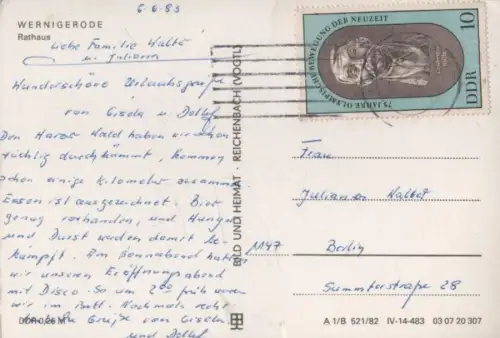 WERNIGERODE
Rathaus
6.6.83
Liebe Familie Walter
u. Juliana
Wunderschöne Urlaubsgrüße
von Gisela u. Detlef
Den Harzer Wald haben wir schon
tüchtig durchkämmt, kommen
schon einige Kilometer zusammen
Essen ist ausgezeichnet. Bier
genug vorhanden, und Hunger
und Durst werden damit be-
kämpft. Am Sonnabend hatten
wir unseren Eröffnungsabend
mit Disco. So um 2.00 früh waren
wir im Bett. Nochmals recht
Grüße von Gisela
und Detlef
DDR 0,26 M
BILD UND HEIMAT · REICHENBACH (VOGTL)
75 JAHRE OLYMPISCHE BEWEGUNG DER NEUZEIT
10
DDR
Frau
Berlin
1147
28
A 1/B 521/82 IV-14-483 03 07 20 307